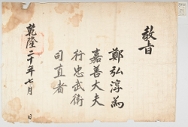 教旨
鄭弘淳為
嘉善大夫
行忠武衛
司直者
乾隆二十年七月 日